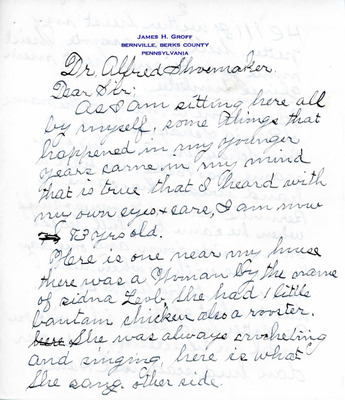 JAMES H. GROFF
BERNVILLE, BERKS COUNTY
PENNSYLVANIA
Dr. Alfred Shoemaker.
Dear Sir:
As I am sitting here all
by myself, some things that
happened in my younger
years came in my mind
that is true that I heard with
my own eyes & ears, I am now
73 yrs old.
Here is one near my house
there was a Woman by the name
of Sidna Leob, She had 1 little
bantam chicken also a rooster.
She was always crocheting
and singing, here is what
She sang. other side.